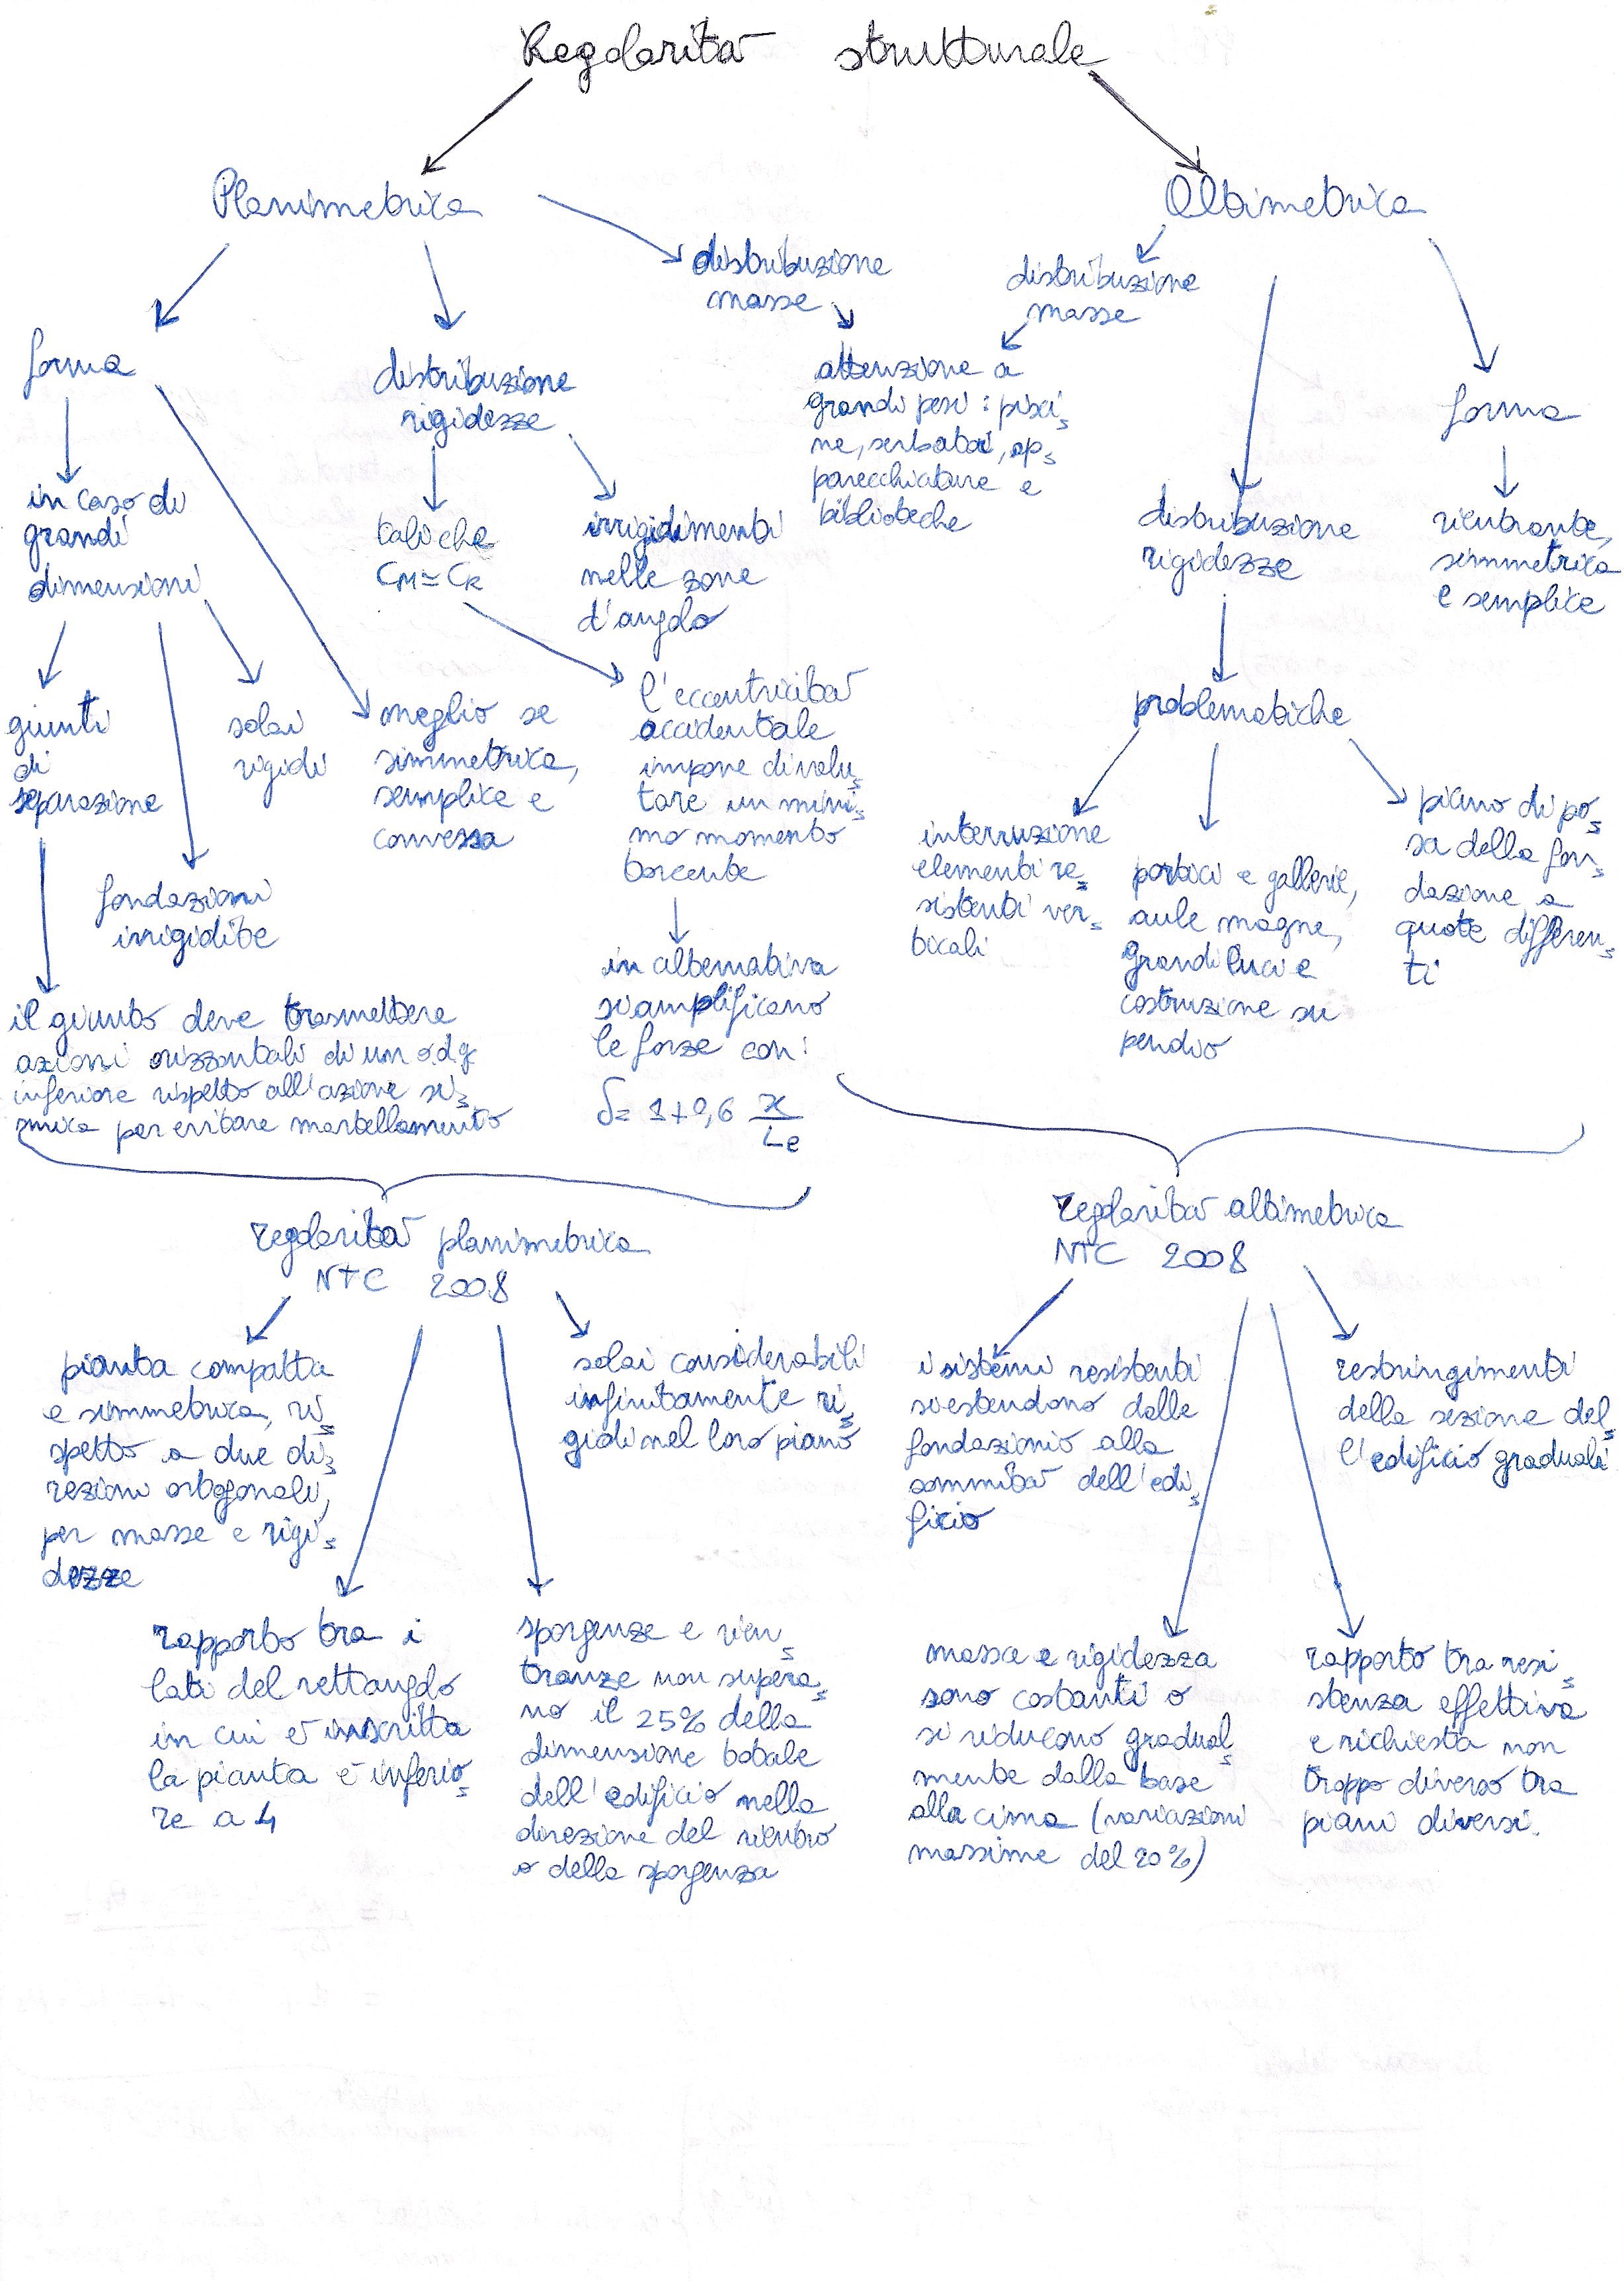 Regolarità strutturale
Planimetrica
Altimetrica
distribuzione
masse
distribuzione
masse
forma
distribuzione
rigidezze
attenzione a
grandi pesi : pisci
ne, serbatoi, ap
parecchiature e
biblioteche
forma
in caso di
grandi
dimensioni
tali che
CM ≃ CR
irrigidimenti
nelle zone
d'angolo
distribuzione
rigidezze
rientrante,
simmetrica
e semplice
giunti
di
separazione
solai
rigidi
meglio se
simmetrica,
semplice e
convessa
l'eccentricità
accidentale
impone di valu
tare un mini
mo momento
torcente
problematiche
fondazioni
irrigidite
interruzione
elementi re
sistenti ver
ticali
portici e gallerie,
aule magne,
grandi luci e
costruzione su
pendio
piano di po
sa della fon
dazione a
quote differen
ti
il giunto deve trasmettere
azioni orizzontali di un o.d.g
inferiore rispetto all'azione si
smica per evitare martellamento
in alternativa
si amplificano
le forze con:
δ= 1+0,6 x/Le
regolarità planimetrica
NTC 2008
regolarità altimetrica
NTC 2008
pianta compatta
e simmetrica, ri
spetto a due di
rezioni ortogonali,
per masse e rigi
dezze
solai considerabili
infinitamente ri
gidi nel loro piano
i sistemi resistenti
si estendono dalle
fondazionio alla
sommità dell'edi
ficio
restringimenti
della sezione del
l'edificio graduali
rapporto tra i
lati del rettangolo
in cui è inscritta
la pianta è inferio
re a 4
sporgenze e rien
tranze non supera
no il 25% della
dimensione totale
dell'edificio nella
direzione del rientro
o della sporgenza
massa e rigidezza
sono costanti o
si riducono gradual
mente dalla base
alla cima (variazioni
massime del 20%)
rapporto tra resi
stenza effettiva
e richiesta non
troppo diverso tra
piani diversi.